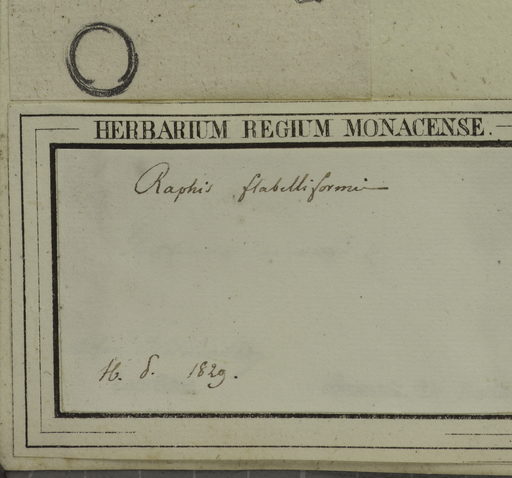 HERBARIUM REGIUM MONACENSE.
Raphis flabelliformis
H. δ. 1829.